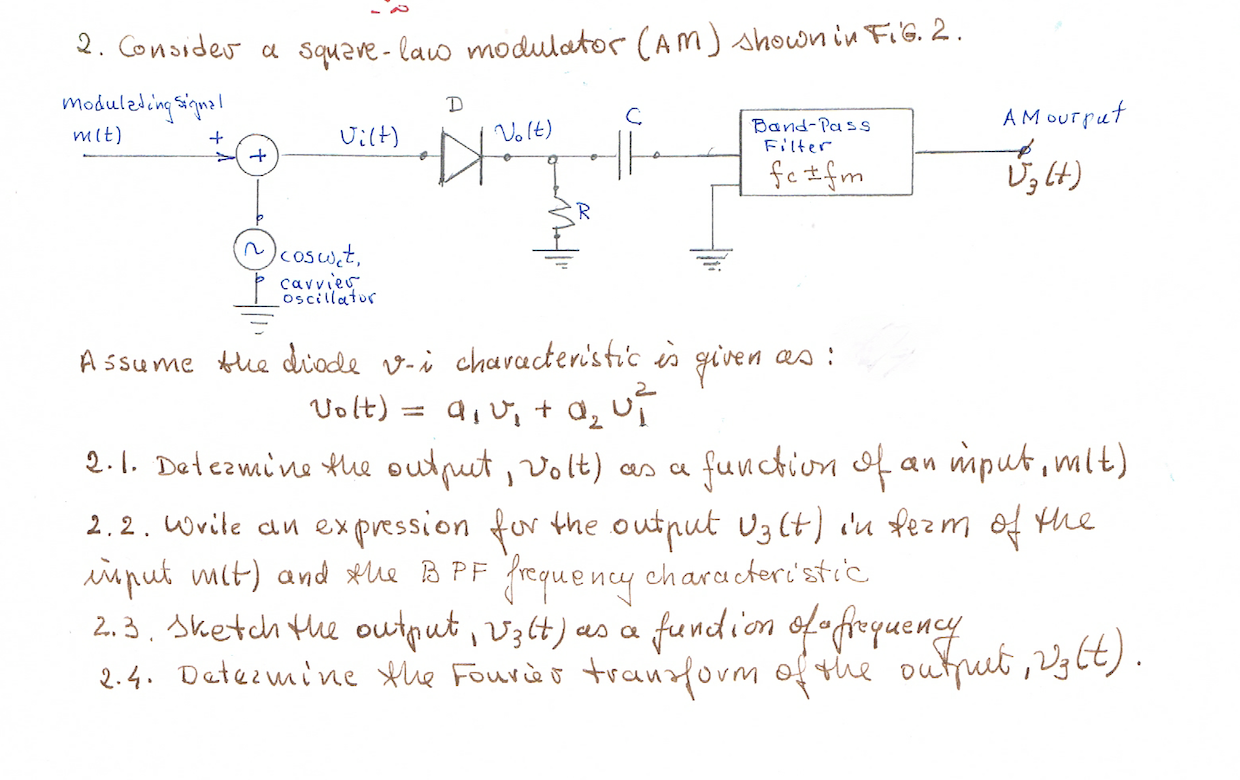 2. Consider a square-law modulator (AM) shown in FiG. 2.
modulating signal
m(t)
+
+
Vi(t)
D
Vo(t)
C
R
Band-Pass
Filter
fc ± fm
AM output
V3(t)
cosωct,
carrier
oscillator
Assume the diode v-i characteristic is given as :
Vo(t) = a1 v1 + a2 v1²
2.1. Determine the output, Vo(t) as a function of an input, m(t)
2.2. Write an expression for the output V3(t) in term of the
input m(t) and the BPF frequency characteristic
2.3. Sketch the output, V3(t) as a function of a frequency
2.4. Determine the Fourier transform of the output, V3(t).